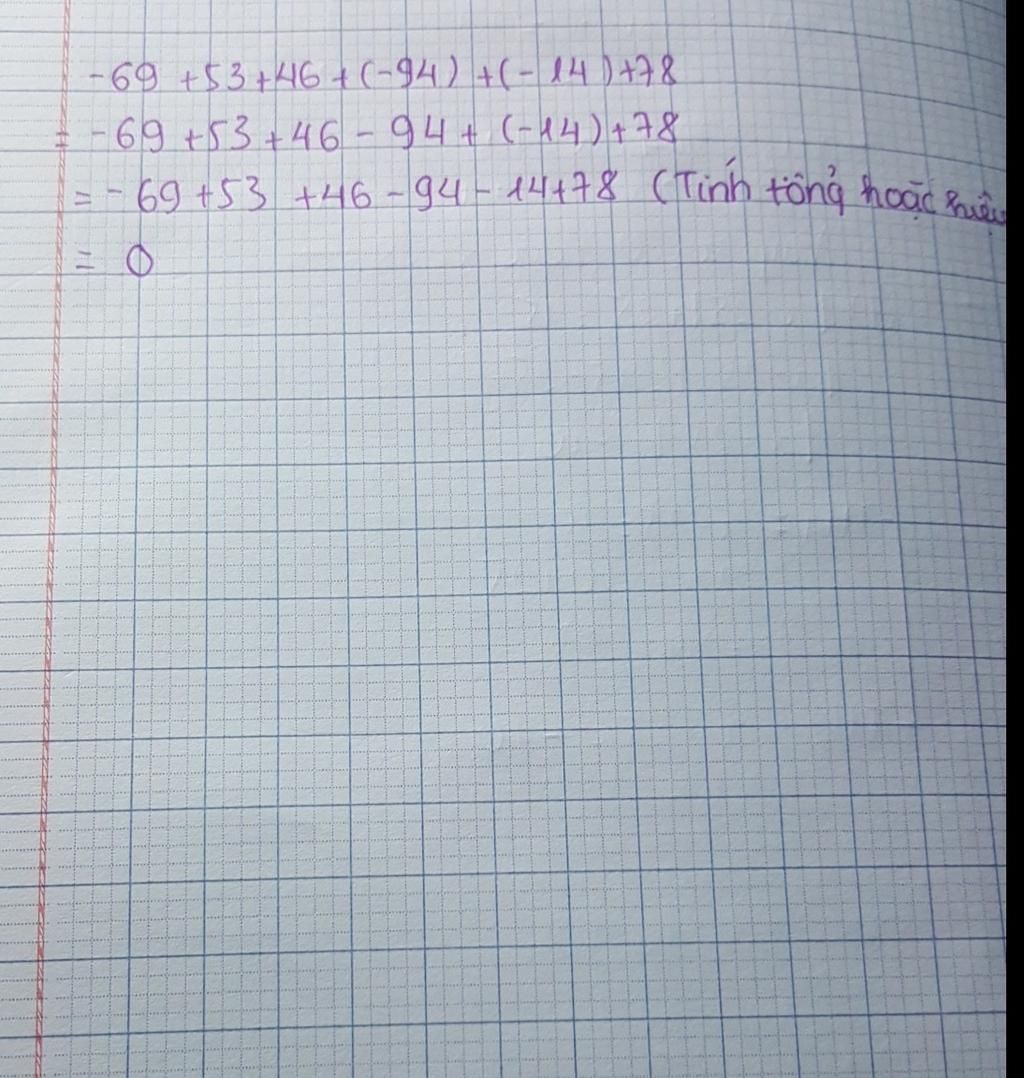 -69 +53+46 +(-94) +(-14)+78
= -69 +53 +46 - 94 + (-14)+78
= - 69 +53 +46 - 94 - 14+78 (Tính tổng hoặc hiệu
= 0